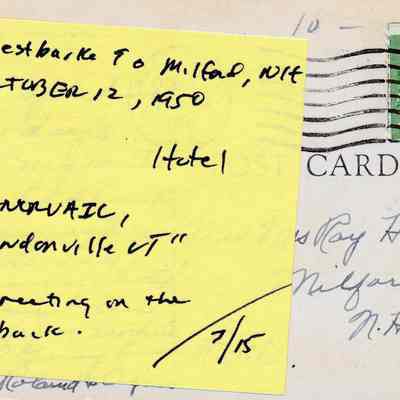 10 -
estbarke to Milford, NH
TOBER 12, 1950
Hotel
CARD
ndonville VT"
s Ray H
Milfor
N.H
reeting on the
back.
7/15